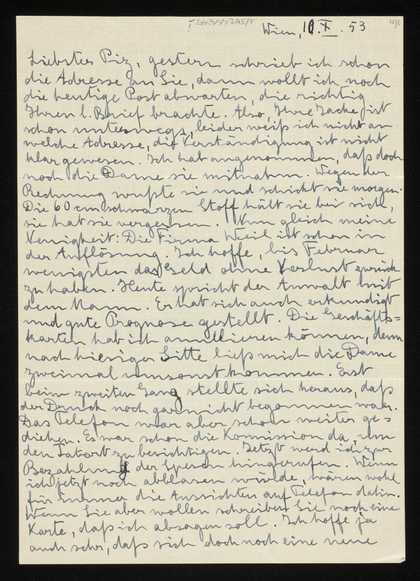 Wien, 10.X.53
Liebstes Piz, gestern schrieb ich schon
die Adresse an Sie, dann wollt ich noch
die heutige Post abwarten, die richtig
Ihren l. Brief brachte. Also, Ihre Jacke ist
schon unterwegs, leider weiß ich nicht an
welche Adresse, die Verständigung ist nicht
klar gewesen. Ich hab angenommen, daß doch
noch die Dame sie mitnahm. Wegen der
Rechnung wußte sie und schickt sie morgen.
Die 60 cm schwarzen Stoff hält sie bei sich,
sie hat sie vergessen. Nun gleich meine
Neuigkeit: Die Firma Weil ist schon in
der Auflösung. Ich hoffe, bis Februar
wenigstens das Geld ohne Verlust zurück
zu haben. Heute spricht der Anwalt mit
dem Mann. Er hat sich auch erkundigt
und gute Prognose gestellt. Die Geschäfts=
karten hab ich annullieren können, denn
nach hiesiger Sitte ließ mich die Dame
zweimal umsonst kommen. Erst
beim zweiten Gang stellte sich heraus, daß
der Druck noch gar nicht begonnen war.
Das Telefon war aber schon weiter ge=
diehen. Es war schon die Kommission da, um
den Tatort zu besichtigen. Jetzt werd ich zur
Bezahlung der Spesen hingerufen. Wenn
ich jetzt noch abblasen würde, wären wohl
für immer die Aussichten auf Telefon dahin.
Wenn Sie aber wollen schreiben Sie noch eine
Karte, daß ich absagen soll. Ich hoffe ja
auch sehr, daß sich doch noch eine neue